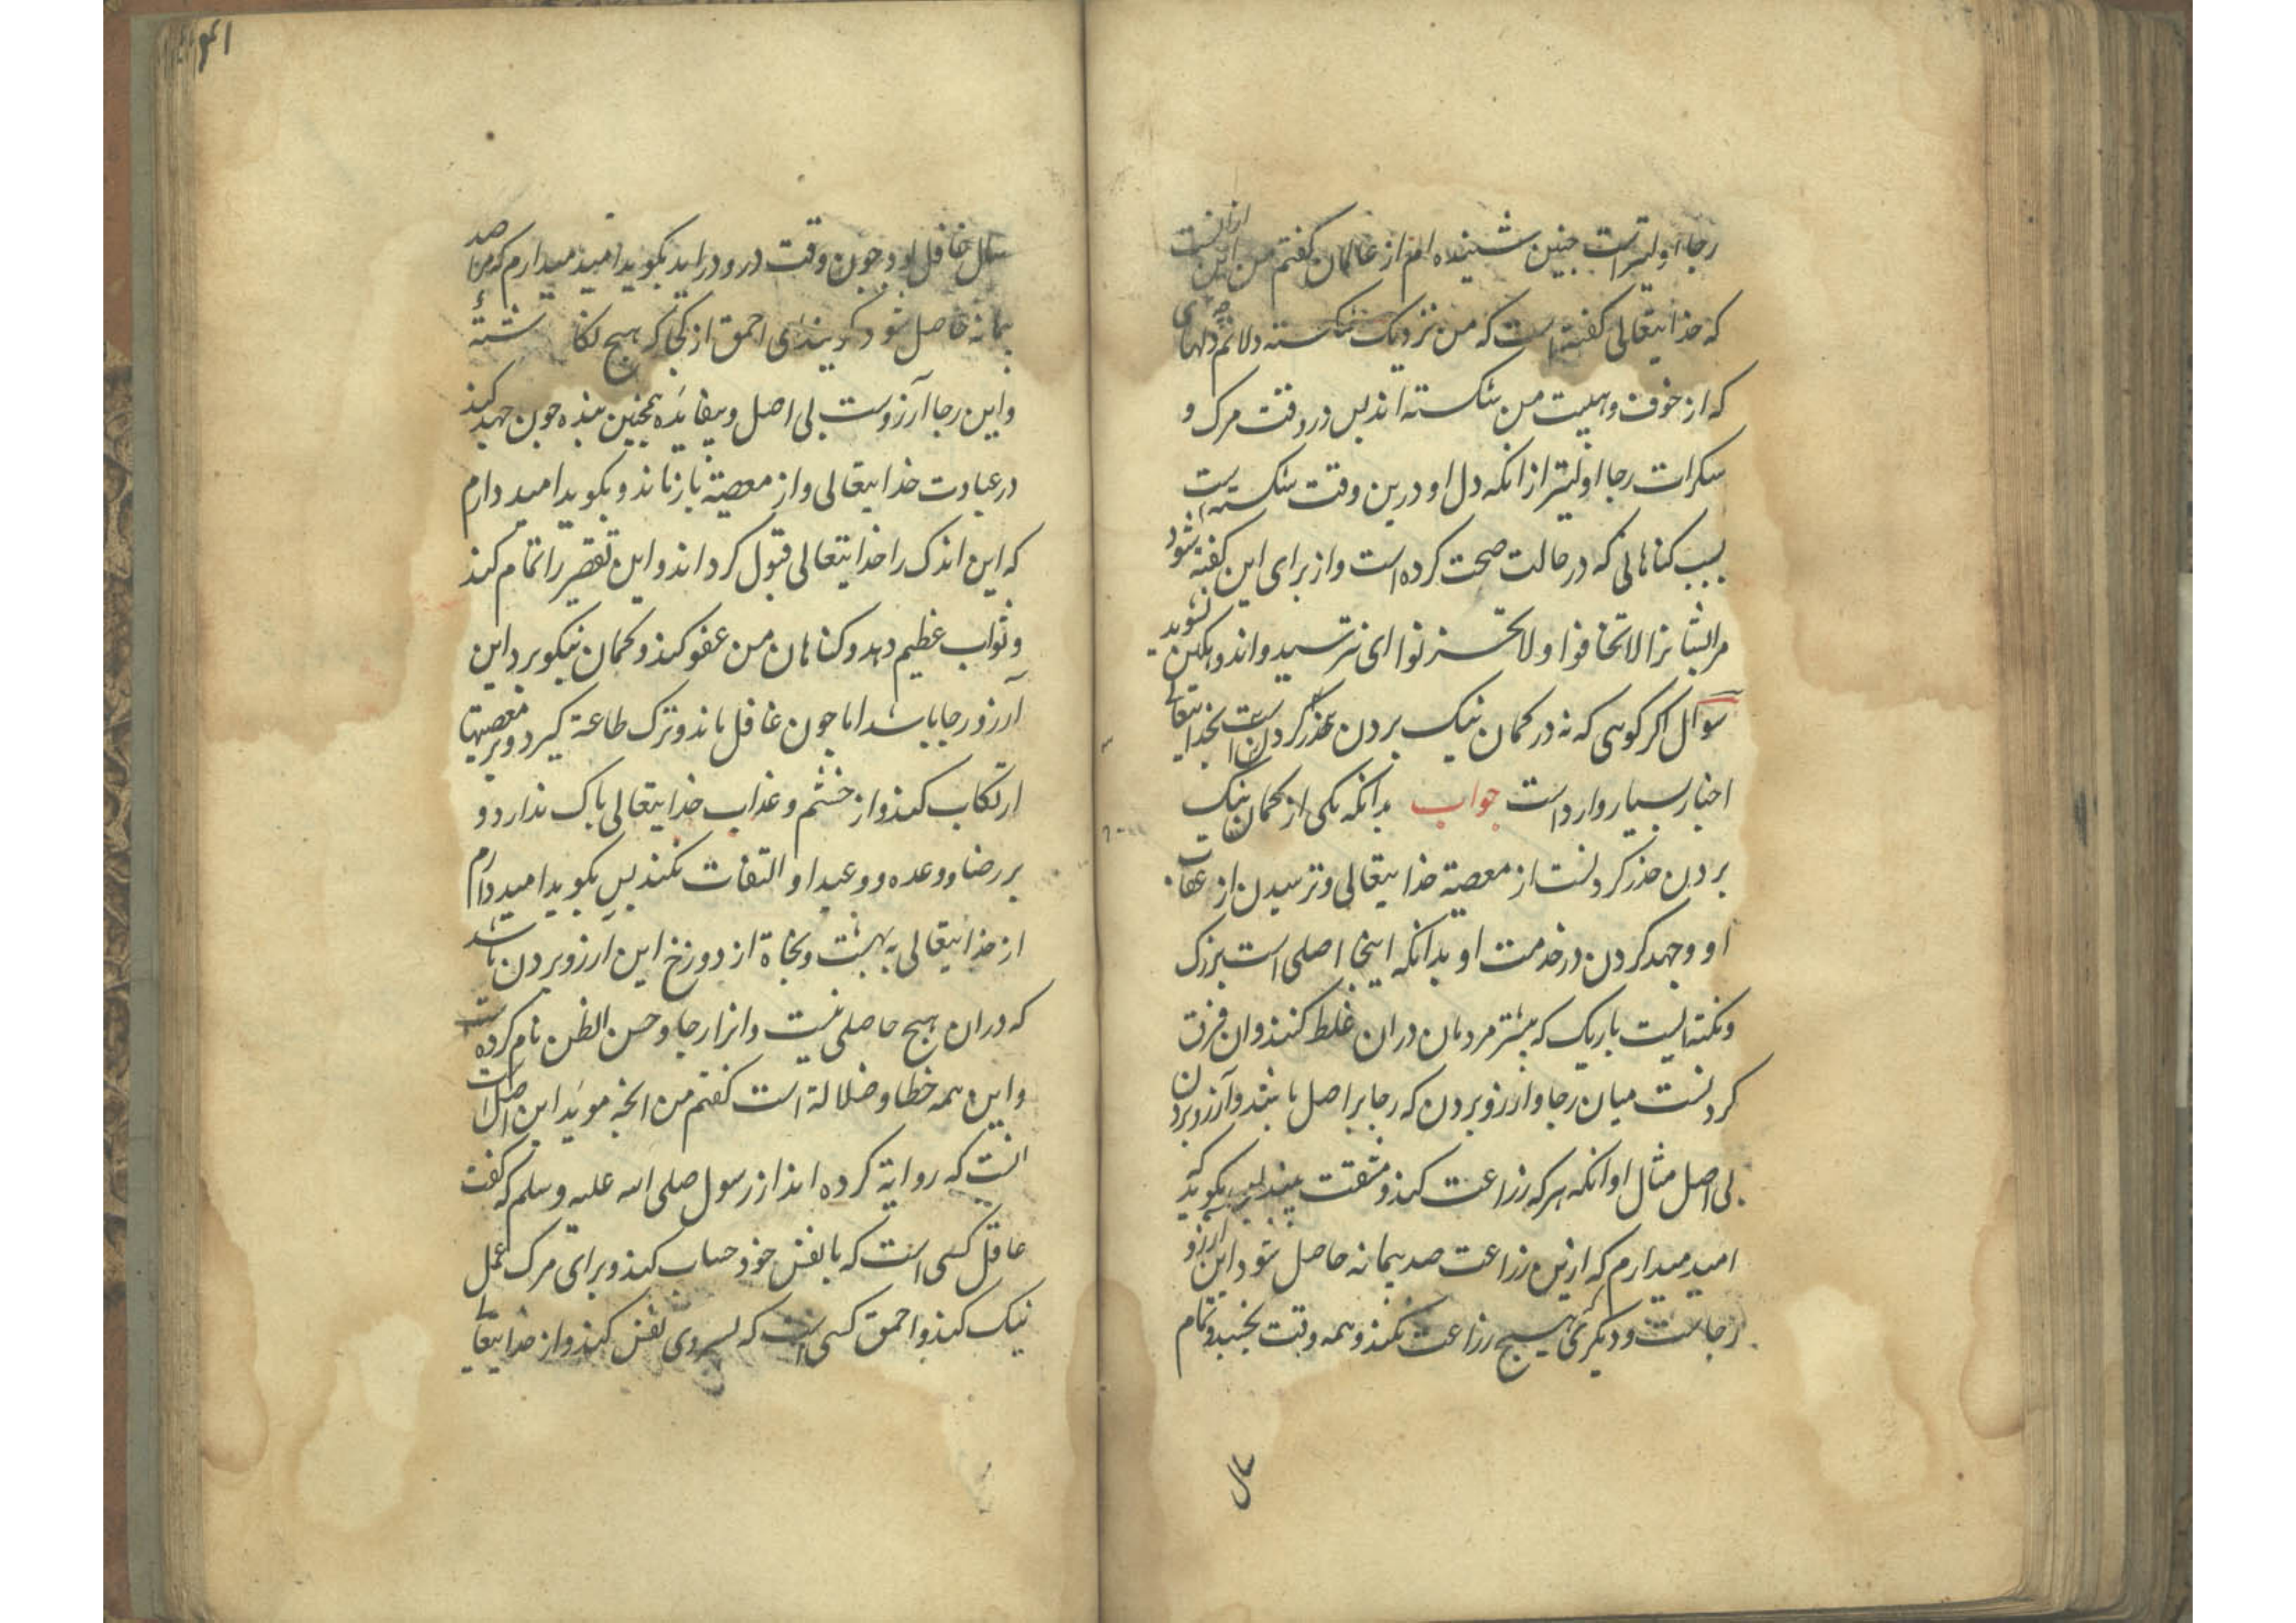 رجا اولیتر است چنین شنیده ام از عالمان گفتم من این ازانست
که خدایتعالی گفته است که من نزدیک شکسته دلانم دلهای
که از خوف و هیبت من شکسته اند پس در وقت مرک و
سکرات رجا اولیتر از انکه دل او درین وقت شکسته است
بسبب کناهانی که در حالت صحت کرده است و از برای این کفته شود
مر ایشانرا لا تخافوا و لا تحزنوا ای نترسید و اندوهکین نشوید
سوال اکر کوئی که نه در کمان نیک بردن بخدایتعالی
اخبار بسیار وارد است جواب بدانکه یکی از کمان نیک
بردن حذر کردنست از معصیة خدایتعالی و ترسیدن از عقاب
او و جهد کردن در خدمت او بدانکه اینجا اصلی است بزرک
و نکته ایست باریک که بیشتر مردمان دران غلط کنند و ان فرق
کردنست میان رجا و ارزو بردن که رجا بر اصل باشد و آرزو بردن
بی اصل مثال او انکه هرکه زراعت کند و مشقت بیند پس بکوید که
امید میدارم که ازین زراعت صد پیمانه حاصل شود این آرزو
رجاست و دیکری هیچ زراعت نکند و همه وقت بخسبد و تمام
سال
سال غافل بود چون وقت درو دراید بکوید امید میدارم که من صد
پیمانه حاصل شود کویند ای احمق از کجا که هیچ نکاشتهٔ
و این رجا آرزوست بی اصل و بیفایده همچنین بنده چون جهد کند
در عبادت خدایتعالی و از معصیة باز ماند و بکوید امید دارم
که این اندک را خدایتعالی قبول کرداند و این تقصیر را تمام کند
و ثواب عظیم دهد و کناهان من عفو کند و کمان نیکو برد این
آرزو رجا باشد اما چون غافل باند و ترک طاعة کیرد و بر معصیتها
ارتکاب کند و از خشم و عذاب خدایتعالی باک ندارد و
بر رضا و وعده و وعید او التفات نکند پس بکوید امید دارم
از خدایتعالی به بهشت و نجاة از دوزخ این آرزو بردن باشد
که دران هیچ حاصلی نیست و انرا رجا و حسن الظن نام کرده است
و این همه خطا و ضلالة است کفتم من انچه موید این اصل است
انست که روایة کرده اند از رسول صلی الله علیه و سلم که کفت
عاقل کسی است که با نفس خود حساب کند و برای مرک عمل
نیک کند و احمق کسی است که پسروی نفس کند و از خدایتعالی